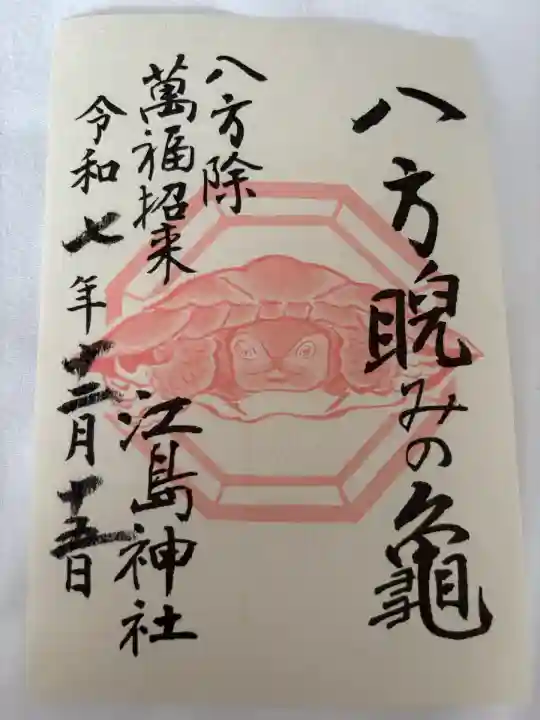 八方睨みの龜
八方除
萬福招来
江島神社
令和七年十二月十五日